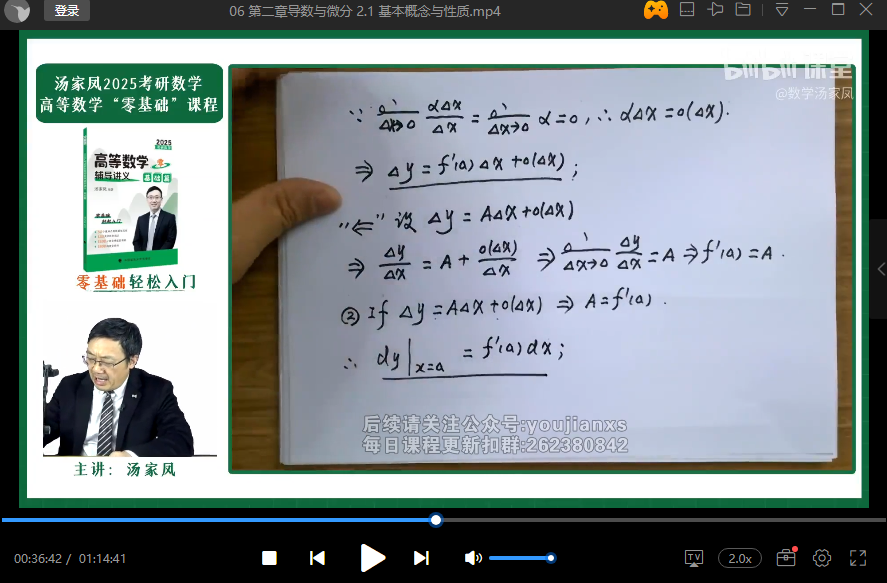 登录
06 第二章导数与微分 2.1 基本概念与性质.mp4
汤家凤2025考研数学
高等数学“零基础”课程
2025
高等数学
辅导讲义
基础篇
零基础
轻松入门
零基础轻松入门
主讲：汤家凤
bilibili 课堂
@数学汤家凤
∵ lim Δx→0 αΔx/Δx = lim Δx→0 α = 0, ∴ αΔx = o(Δx).
⇒ Δy = f'(a)Δx + o(Δx);
"⇐" 设 Δy = AΔx + o(Δx)
⇒ Δy/Δx = A + o(Δx)/Δx ⇒ lim Δx→0 Δy/Δx = A ⇒ f'(a) = A.
② If Δy = AΔx + o(Δx) ⇒ A = f'(a).
∴ dy|x=a = f'(a)dx;
后续请关注公众号:youjianxs
每日课程更新扣群:262380842
00:36:42 / 01:14:41
TV
2.0x